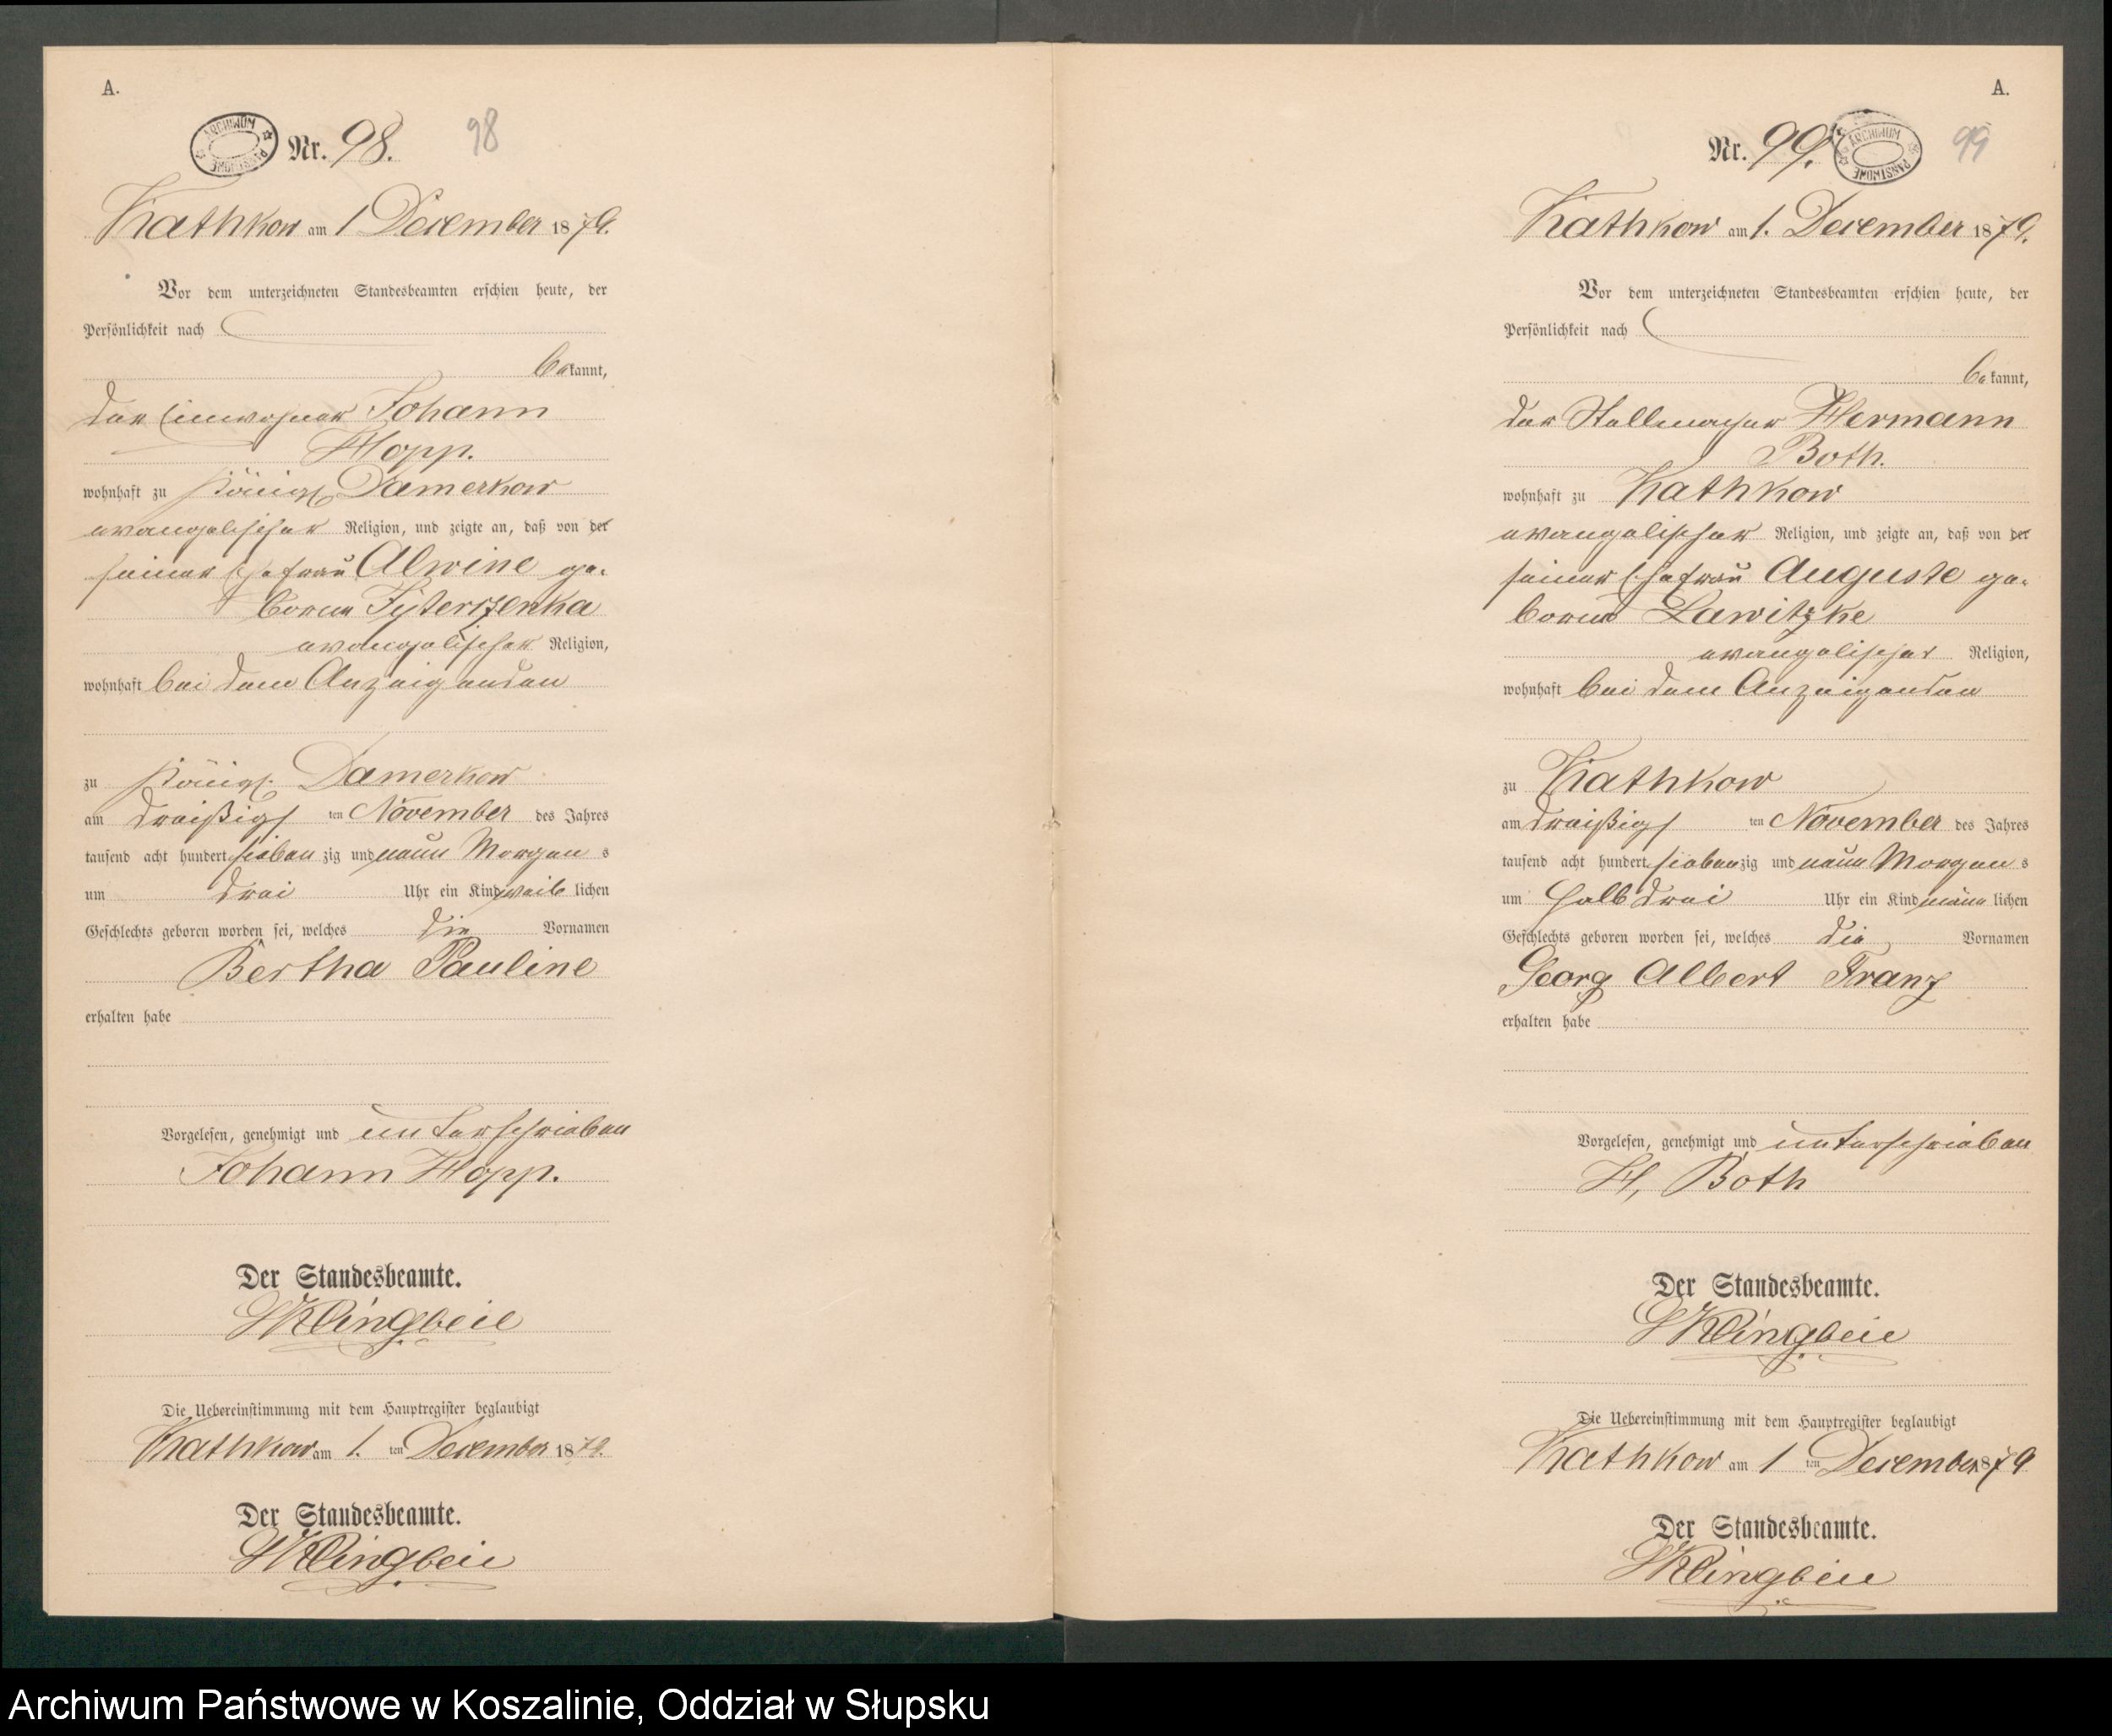 A.
ARCHIWUM PAŃSTWOWE
Nr. 98.
98
Kathkow am 1 December 1879.
Vor dem unterzeichneten Standesbeamten erschien heute, der
Persönlichkeit nach
bekannt,
der Einwohner Johann
Hopp.
wohnhaft zu Königl. Damerkow
evangelischer Religion, und zeigte an, daß von der
seiner Ehefrau Alwine ge-
borene
evangelischer Religion,
wohnhaft bei dem Anzeigenden
zu Königl. Damerkow
am dreißigs ten November des Jahres
tausend acht hundert sieben zig und neun Morgen s
um drei Uhr ein Kind weib lichen
Geschlechts geboren worden sei, welches die Vornamen
Bertha Pauline
erhalten habe
Vorgelesen, genehmigt und unterschrieben
Johann Hopp.
Der Standesbeamte.
Klingbeil
Die Uebereinstimmung mit dem Hauptregister beglaubigt
Kathkow am 1. ten December 1879.
Der Standesbeamte.
Klingbeil
A.
Nr. 99.
ARCHIWUM PAŃSTWOWE
99
Kathkow am 1. December 1879.
Vor dem unterzeichneten Standesbeamten erschien heute, der
Persönlichkeit nach
bekannt,
der Stellmacher Hermann
Both.
wohnhaft zu Kathkow
evangelischer Religion, und zeigte an, daß von der
seiner Ehefrau Auguste ge-
borene Lawitzke
evangelischer Religion,
wohnhaft bei dem Anzeigenden
zu Kathkow
am dreißigs ten November des Jahres
tausend acht hundert sieben zig und neun Morgen s
um halb drei Uhr ein Kind männ lichen
Geschlechts geboren worden sei, welches die Vornamen
Georg Albert Franz
erhalten habe
Vorgelesen, genehmigt und unterschrieben
H. Both
Der Standesbeamte.
Klingbeil
Die Uebereinstimmung mit dem Hauptregister beglaubigt
Kathkow am 1 ten December 1879
Der Standesbeamte.
Klingbeil
Archiwum Państwowe w Koszalinie, Oddział w Słupsku